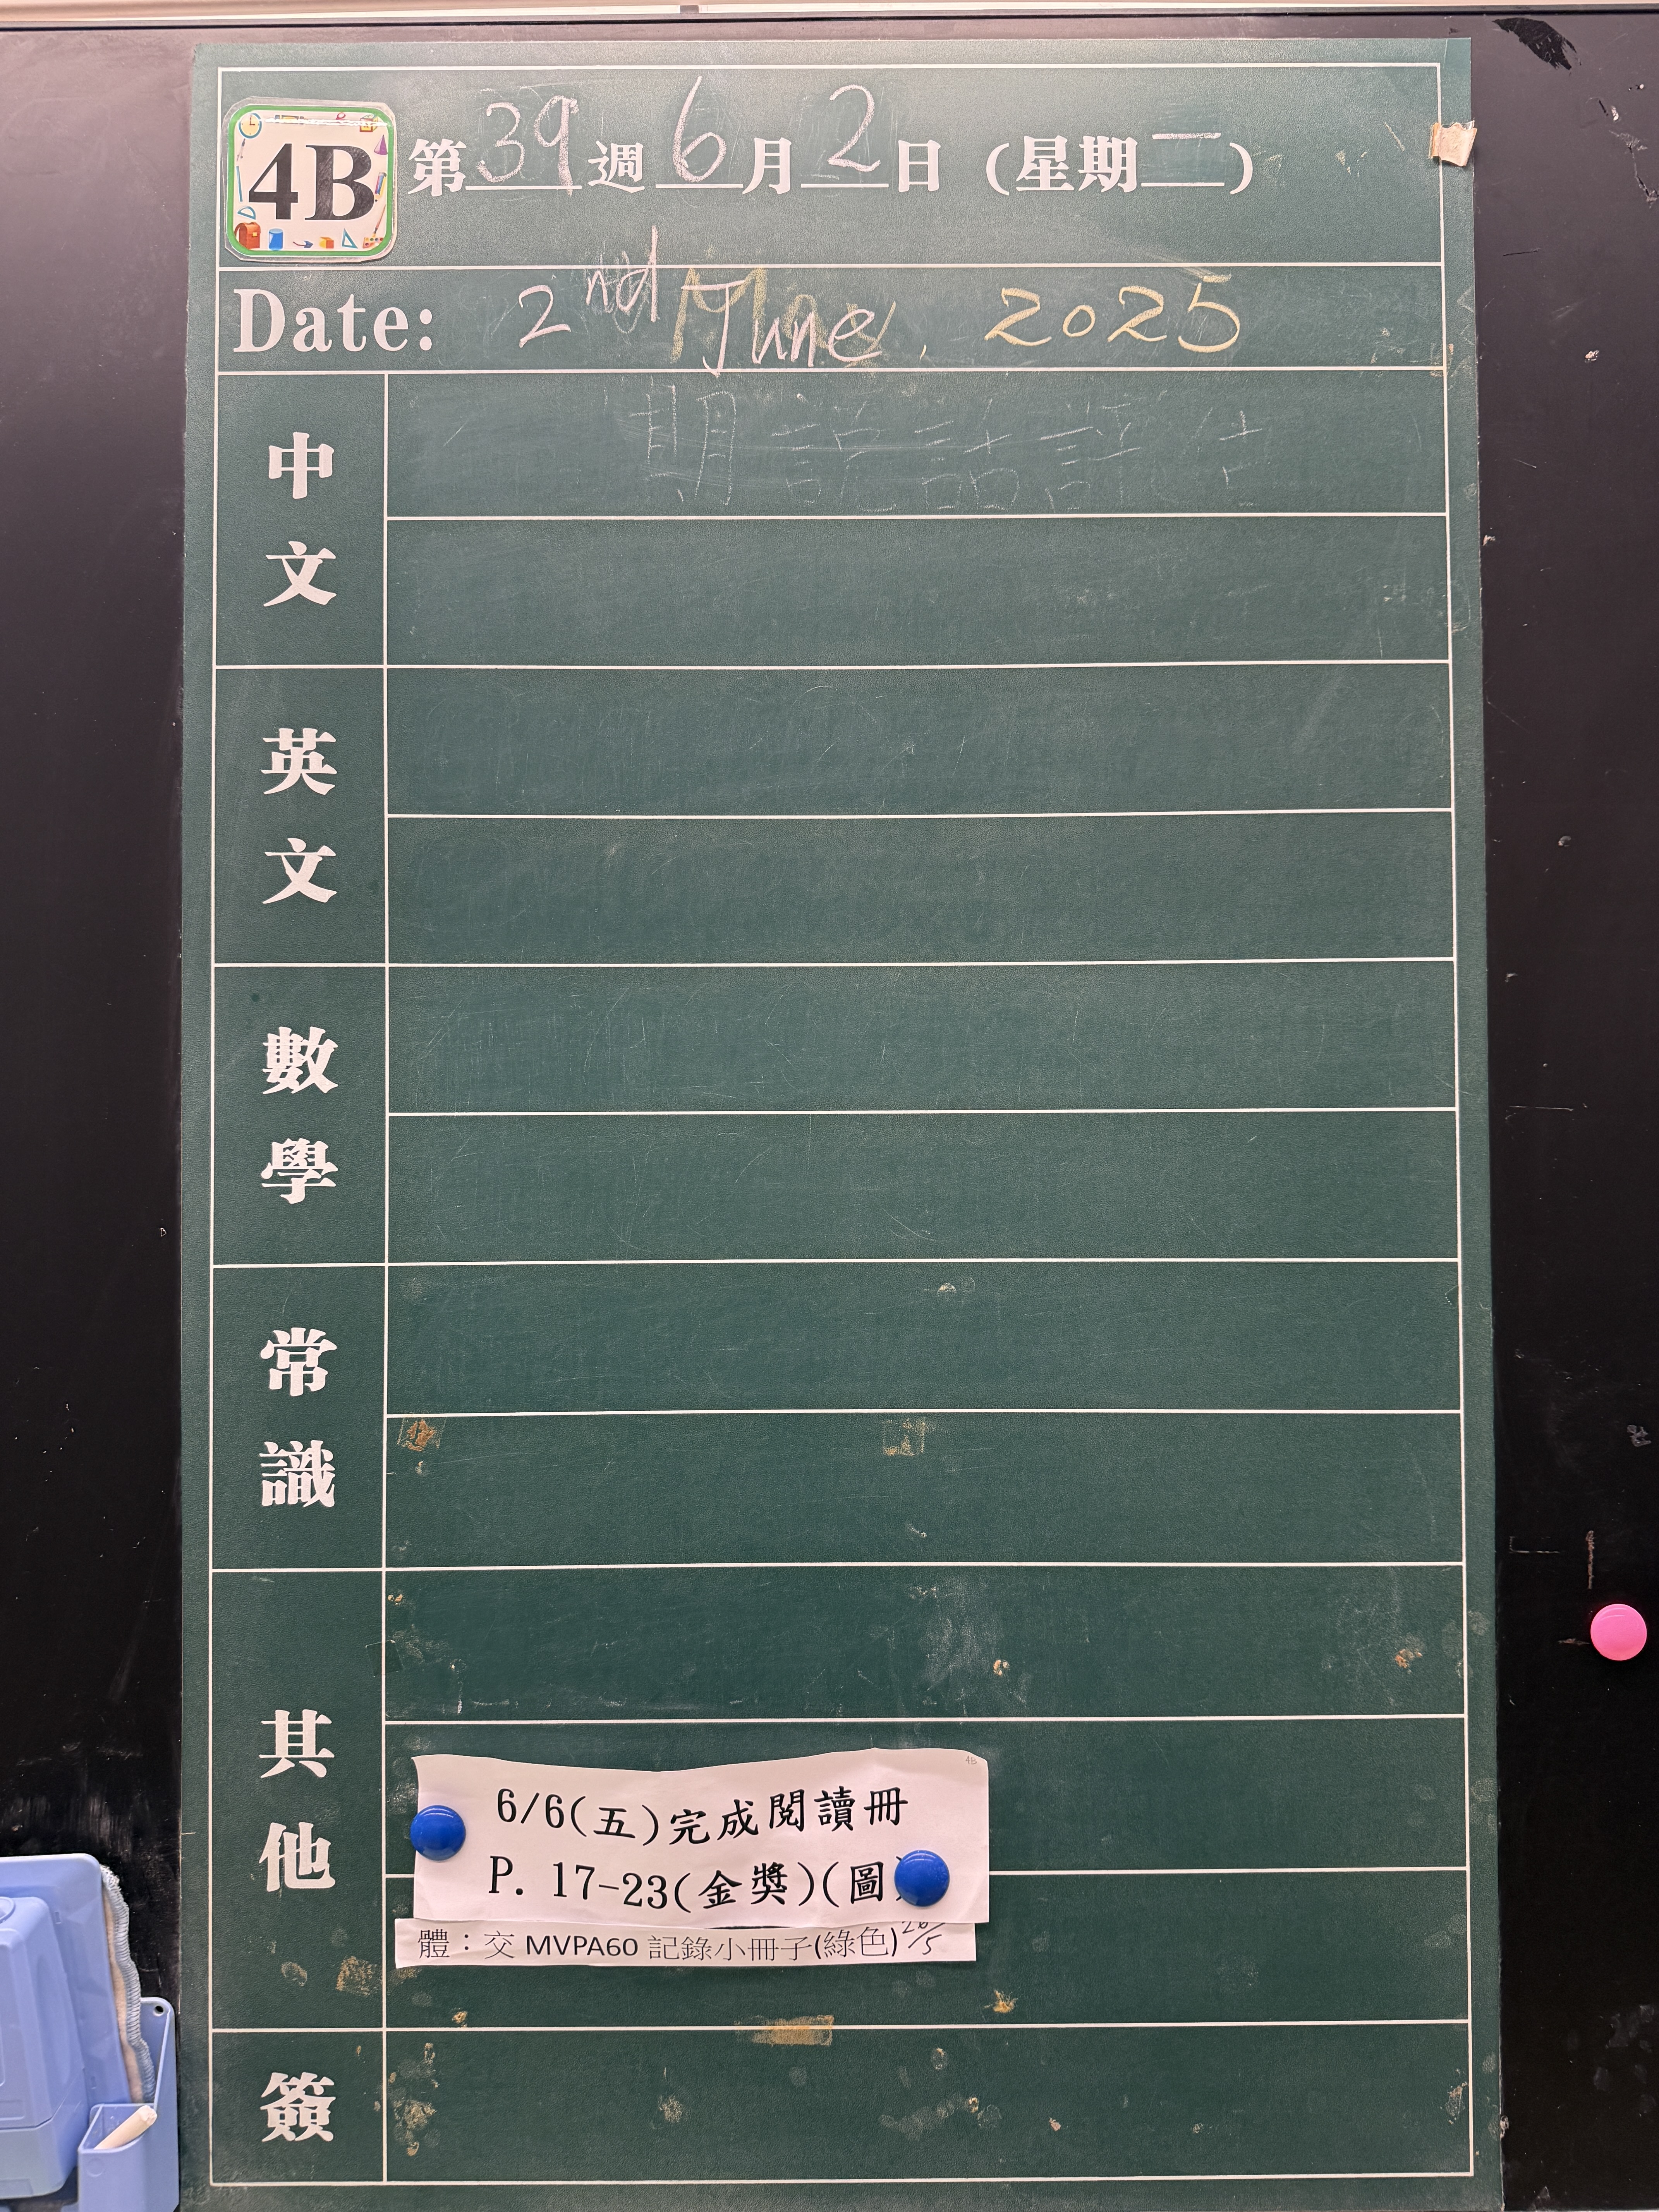 4B 第39週6月2日(星期一)
Date: 2nd June, 2025
中文
期 說話評估
英文
數學
常識
其他
4B
6/6(五)完成閱讀冊
P. 17-23(金獎)(圖
體:交 MVPA60 記錄小冊子(綠色)
簽